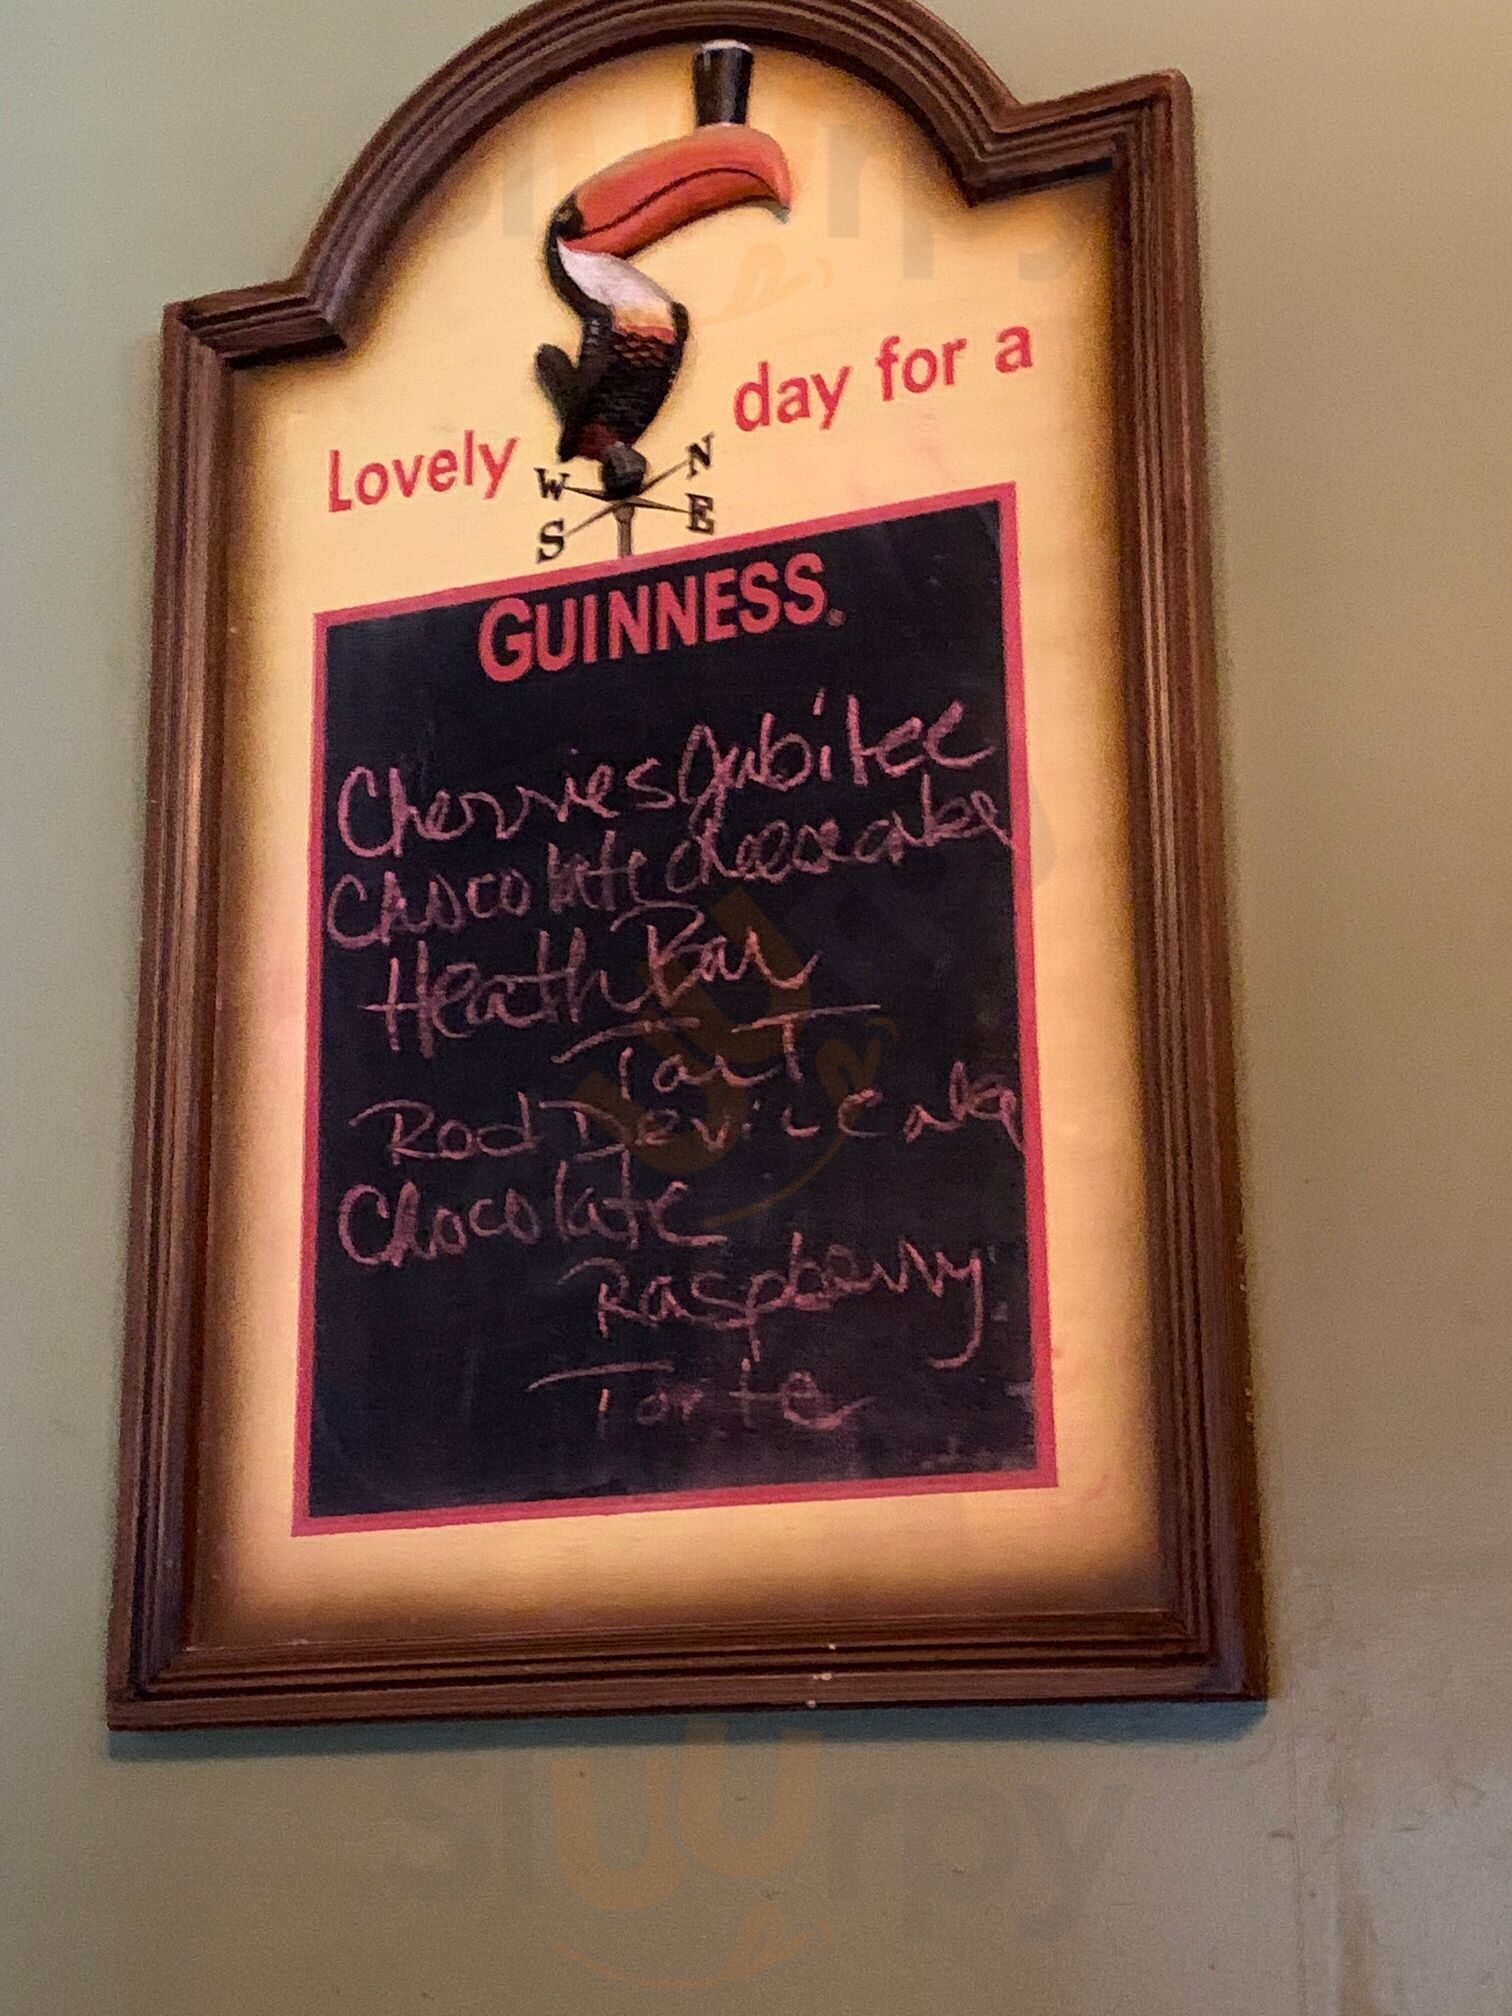 Lovely day for a
W N
S E
GUINNESS®
Cherries Jubilee
Chocolate cheesecake
Heath Bar
Tart
Red Devil Cake
Chocolate
Raspberry
Torte
slurpy
slurpy